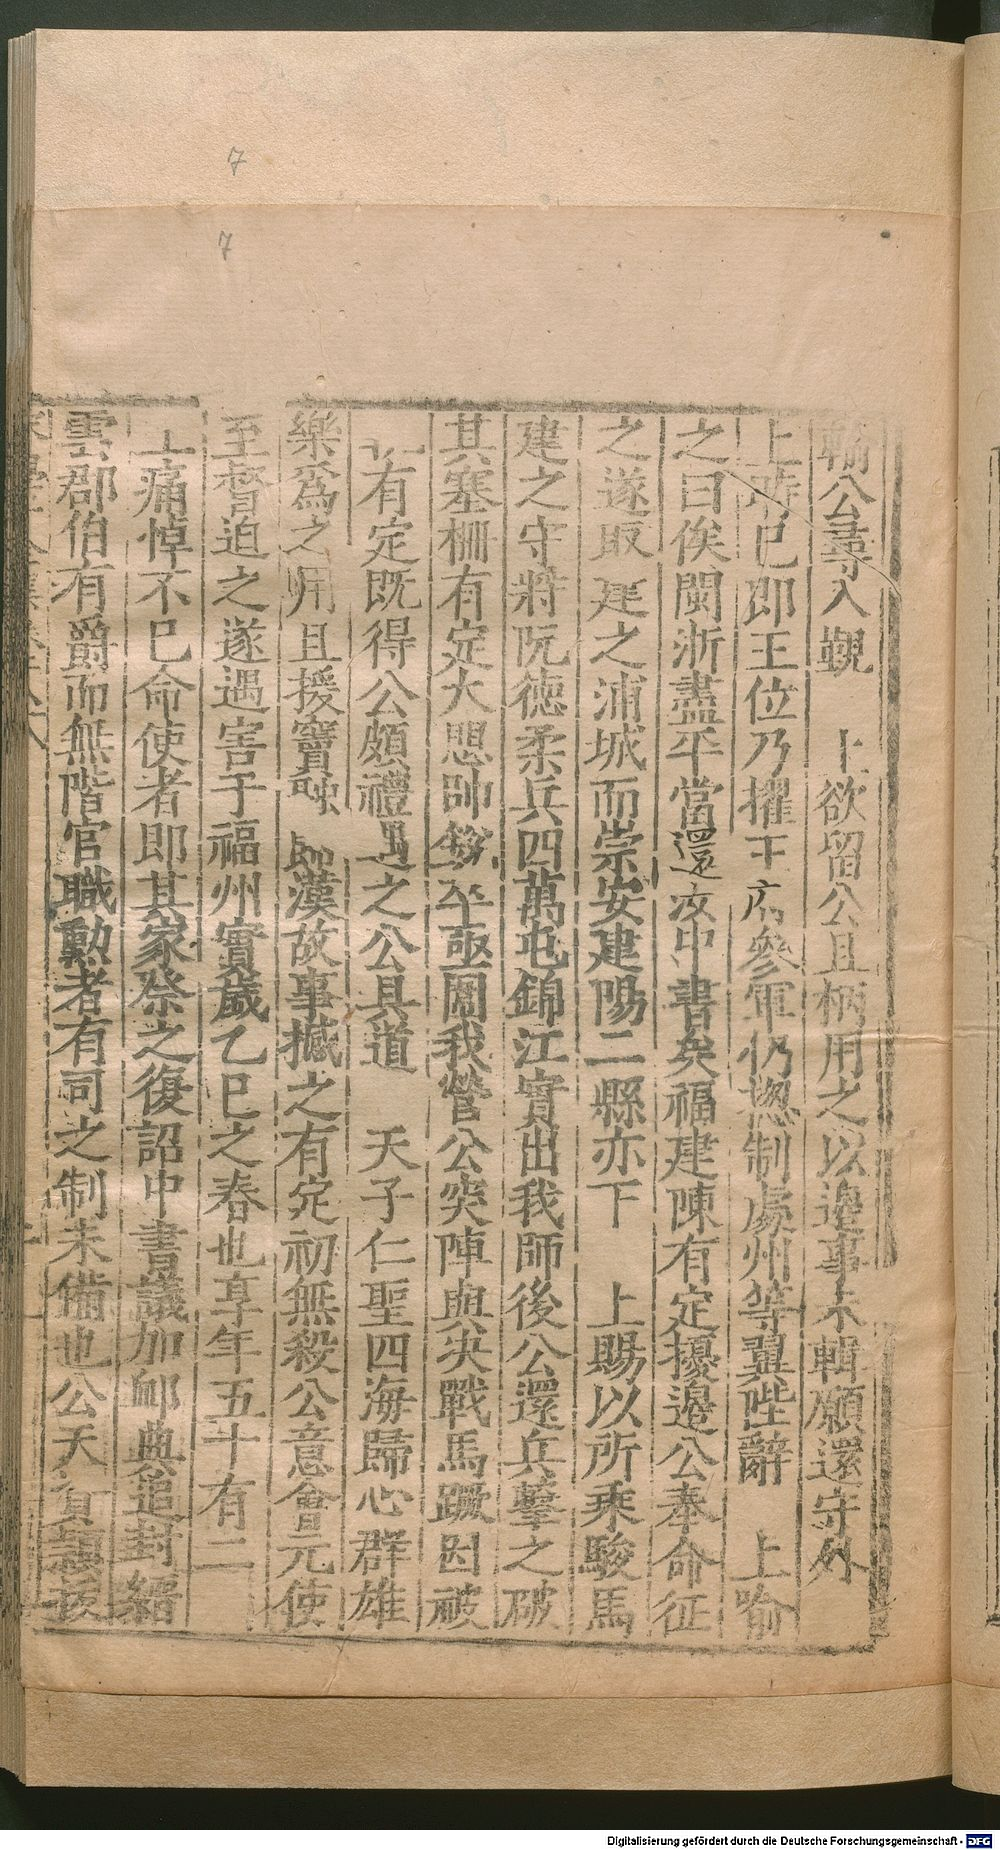 7
7
輸公尋入觀　上欲留公且柄用之以邊事未輯願還守外
上時已即王位乃擢王府參軍仍摠制處州等翼陛辭　上喻
之曰俟閩浙盡平當還汝中書矣福建陳有定擾邊公奉命征
之遂取建之浦城而崇安建陽二縣亦下　上賜以所乘駿馬
建之守將阮德柔兵四萬屯錦江實出我師後公還兵擊之破
其寨柵有定大恐帥卒亟圍我營公突陣與決戰馬蹶因被
有定既得公頗禮遇之公具道　天子仁聖四海歸心群雄
樂為之用且援竇融即漢故事撼之有定初無殺公意會元使
至督迫之遂遇害于福州實歲乙巳之春也享年五十有二
上痛悼不已命使者即其家祭之復詔中書議加卹典追封縉
雲郡伯有爵而無階官職勲者有司之制未備也公天資穎
Digitalisierung gefördert durch die Deutsche Forschungsgemeinschaft - DFG